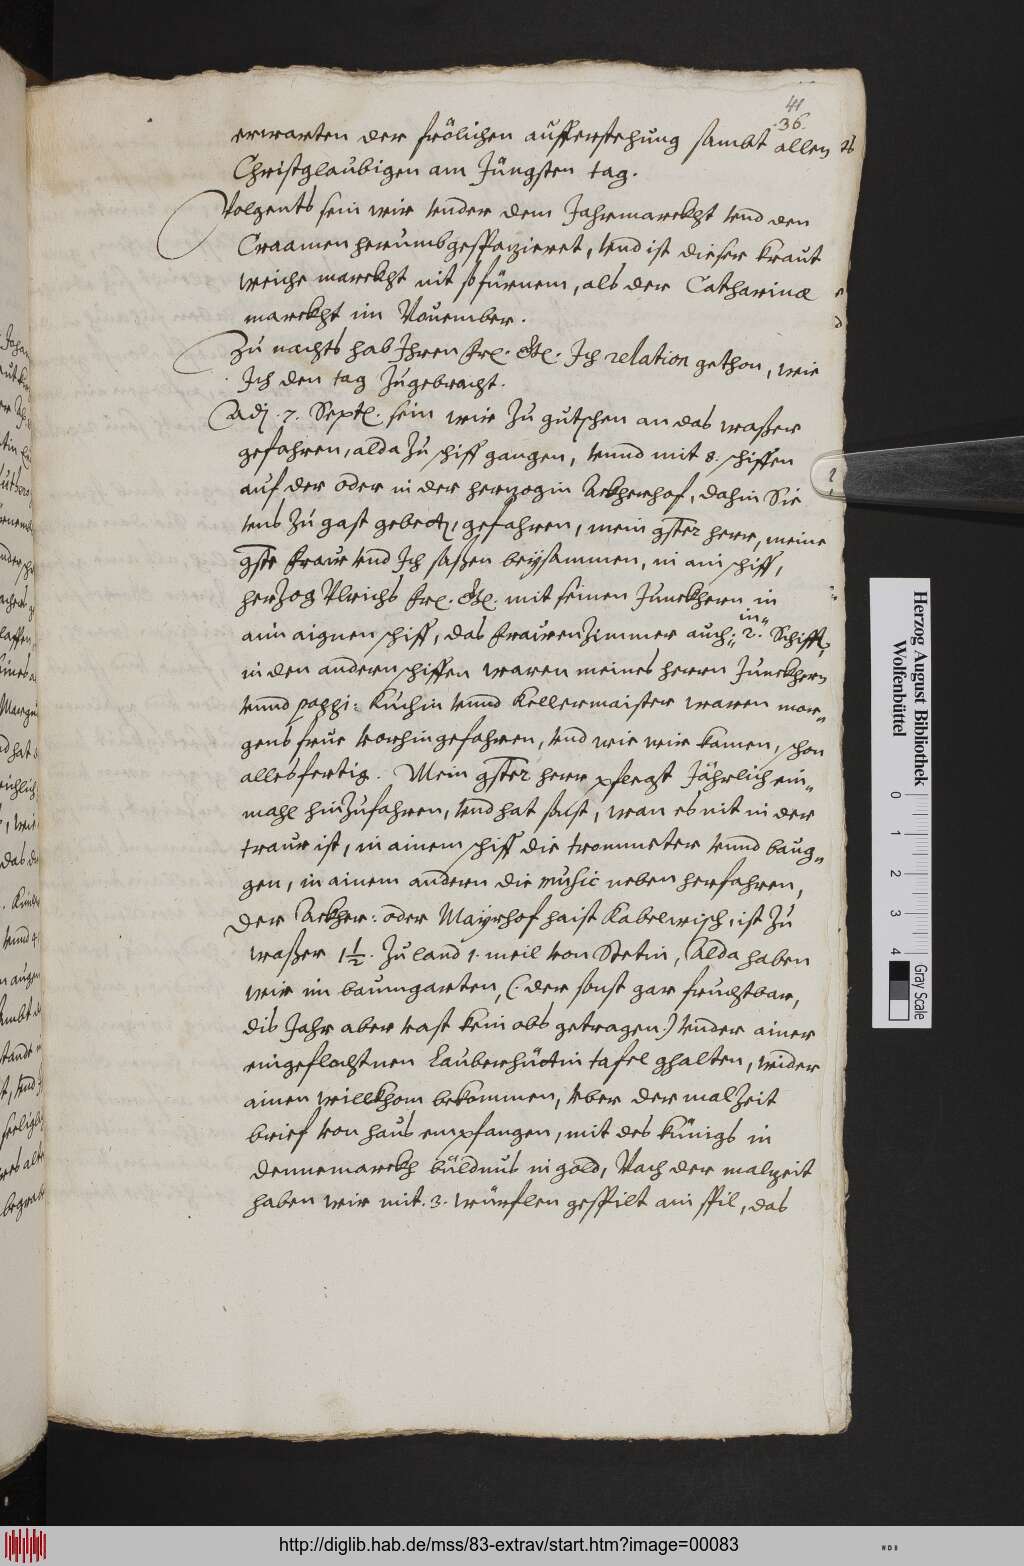 41
36.
erwarten der frölichen aufferstehung sambt allen
Christglaubigen am Jüngsten tag.
Volgents sein wir vnder dem Jahrmarckht vnd den
Craamen herumbgespazieret, vnd ist dieser kraut
weiche marckht nit so fürnem, als der Catharinæ
marckht im Nouember.
Zu nachts hab Ihren Fr. Gl. Ich relation gethon, wie
Ich den tag zugebracht.
Adj. 7. Sept. sein wir zu gutschen an das waßer
gefahren, alda zu schiff gangen, vnnd mit 8. schiffen
auf der oder in der herzogin Ackherhof, dahin Sie
vns zu gast gebett, gefahren, mein gster herr, meine
gste fraw vnd Ich saßen beysammen, in aim schiff,
herzog Vlrichs Fr. Gl. mit seinen Junckhern in
aim aignen schiff, das frawenzimmer auch in 2. Schifft,
in den andern schiffen waren meines herrn Junckhern
vnnd paggi: Kuchin vnnd Kellermaister waren mor„
gens frue vorhingefahren, vnd wie wir kamen, schon
alles fertig. Mein gster herr pflegt Jährlich ein„
mahl hinzufahren, vnd hat sonst, wan es nit in der
traur ist, in ainem schiff die trommeter vnnd baug„
gen, in ainem andern die music neben herfahren,
Der Ackher: oder Mayrhof haist Kabelwisch, ist zu
waßer 1½. zu land 1. meil von Stetin, Alda haben
wir im baumgarten, (: der sonst gar fruchtbar,
dis Jahr aber vast kein obs getragen:) vnder ainer
eingeflochtnen Lauberhüttin tafel ghalten, wider
ainen willkhom bekommen, vber der malzeit
brief von haus empfangen, mit des künigs in
Dennemarckh büldnus in gold, Nach der malzeit
haben wir mit 3. würflen gespilt ain spil, das
Herzog August Bibliothek
Wolfenbüttel
0 1 2 3 4
Gray Scale
http://diglib.hab.de/mss/83-extrav/start.htm?image=00083